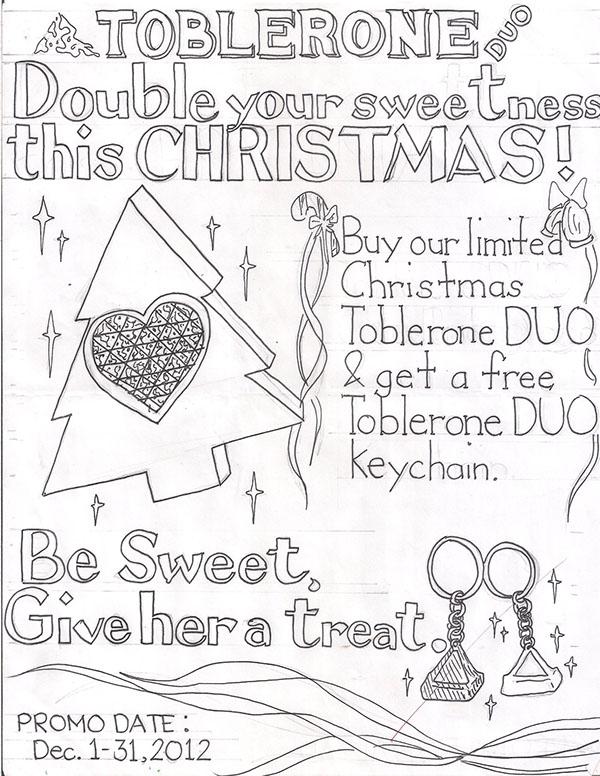 TOBLERONE DUO
Double your sweetness
this CHRISTMAS!
Buy our limited
Christmas
Toblerone DUO
& get a free
Toblerone DUO
keychain.
Be Sweet,
Give her a treat.
PROMO DATE:
Dec. 1-31, 2012